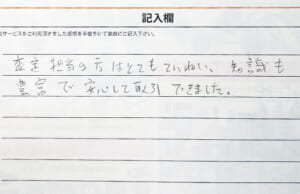 記入欄
サービスをご利用頂きました感想を手書きにて自由にご記入下さい。
査定担当の方はとてもていねい、知識も
豊富で安心して取引できました。